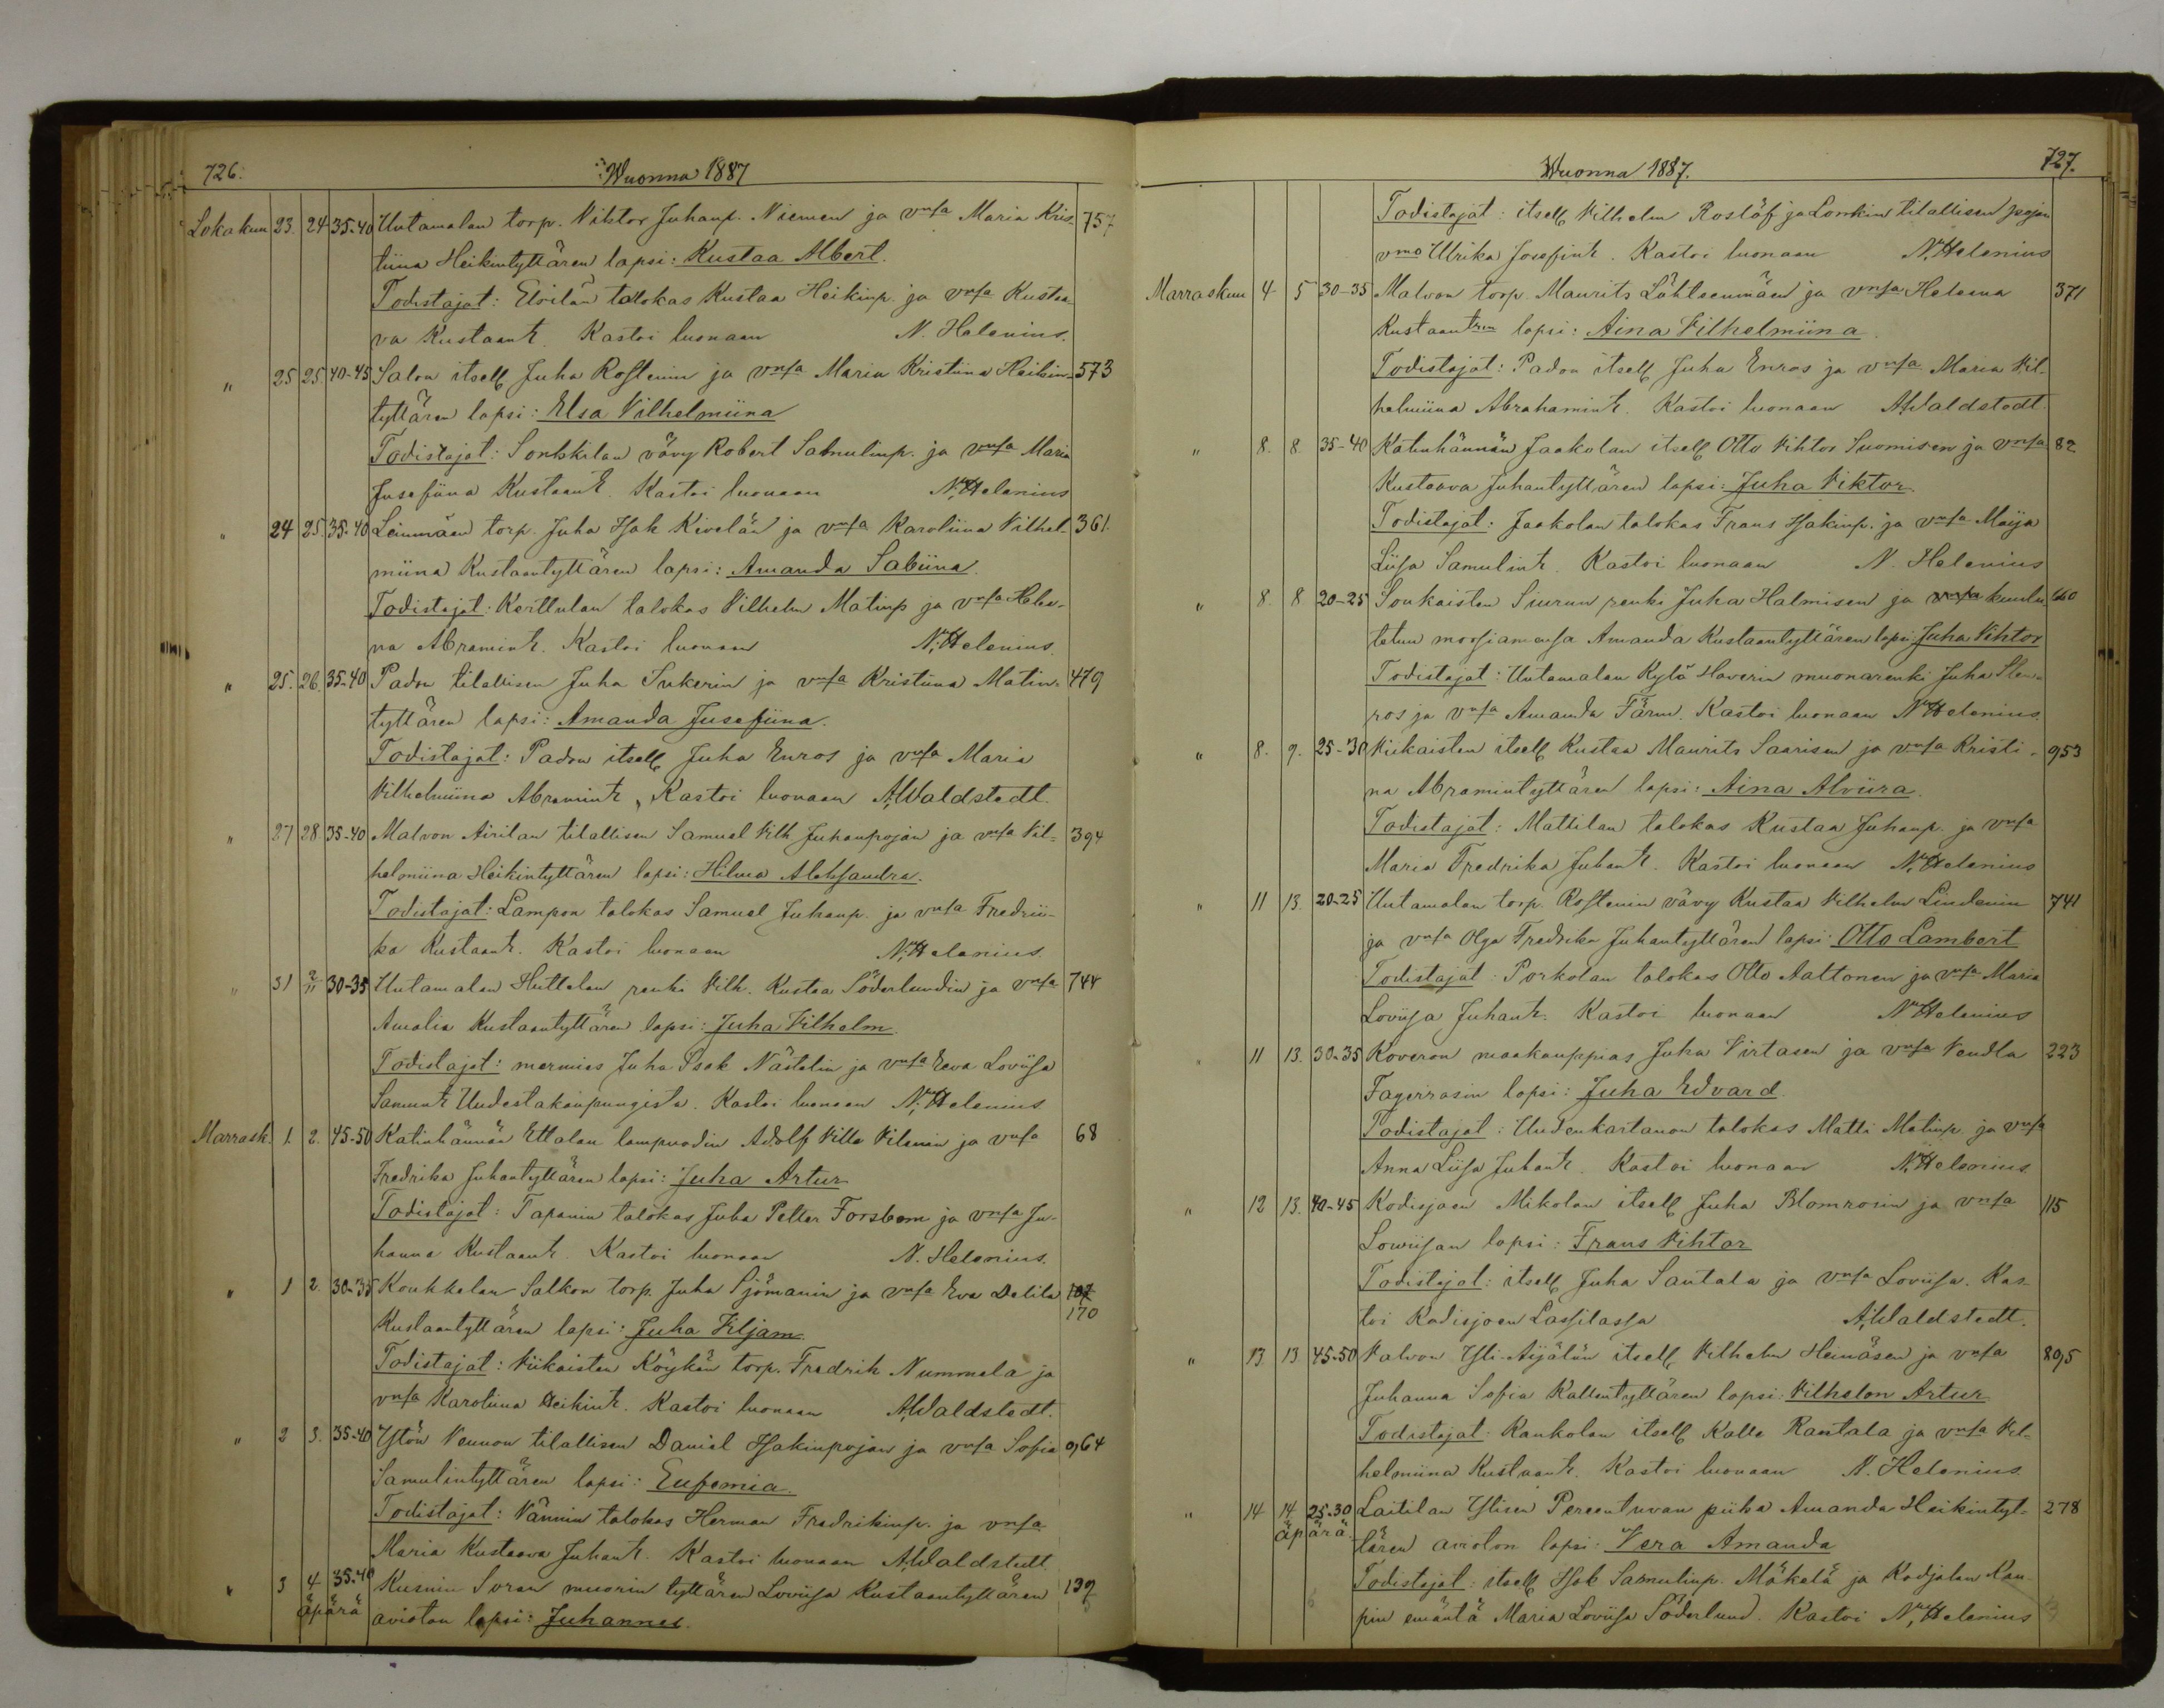 726.
Wuonna 1887
Lokakuu 23. 24 35-40 Untamalan torp. Viktor Juhanp. Niemen ja vmsa Maria Kris- 757
tiina Heikintyttären lapsi: Kustaa Albert.
Todistajat: Eloilan talokas Kustaa Heikinp. ja vmsa Kustaa-
va Kustaant. Kastoi luonaan N. Helenius.
" 25 25. 40-45 Salon itsell Juha Rostenin ja vmsa Maria Kristiina Heikin- 573
tyttären lapsi: Elsa Vilhelmiina
Todistajat: Sontikilan vävy Robert Samulinp. ja vmsa Maria
Jusefiina Kustaant. Kastoi luonaan N. Helenius
" 24 25. 35-40 Leinmäen torp. Juha Isak Kivelän ja vmsa Karoliina Vilhel- 361.
miina Kustaantyttären lapsi: Amanda Sabiina.
Todistajat: Kerttulan talokas Vilhelm Matinp ja vmsa Hele-
na Abramint. Kastoi luonaan N. Helenius.
" 25. 26. 35-40 Padon tilallisen Juha Sukerin ja vmsa Kristiina Matin- 479
tyttären lapsi: Amanda Jusefiina.
Todistajat: Padon itsell Juha Enros ja vmsa Maria
Vilhelmiina Abramint. Kastoi luonaan A. Waldstedt.
" 27 28 35-40 Malvon Airilan tilallisen Samuel Vilh. Juhanpojan ja vmsa Vil- 394
helmiina Heikintyttären lapsi: Hilma Aleksandra.
Todistajat: Lampon talokas Samuel Juhanp. ja vmsa Fredrii-
ka Kustaant. Kastoi luonaan N. Helenius.
" 31 2/11 30-35 Untamalan Huttalan renki Vilh. Kustaa Söderlundin ja vmsa 744
Amalia Kustaantyttären lapsi: Juha Vilhelm.
Todistajat: merimies Juha Isak Nästelin ja vmsa Eeva Loviisa
Samunt Uudestakaupungista. Kastoi luonaan N. Helenius.
Marrask. 1. 2. 45-50 Katinhännän Ettalan lampuodin Adolf Ville Vilenin ja vmsa 68
Fredrika Juhantyttären lapsi: Juha Artur
Todistajat: Tapanin talokas Juha Petter Forsbom ja vmsa Ju-
hanna Kustaant. Kastoi luonaan N. Helenius.
" 1 2. 30-35 Koukkelan Salkon torp. Juha Sjömanin ja vmsa Eva Delila 107
170
Kustaantyttären lapsi: Juha Viljam.
Todistajat: Viikaisten Köykän torp. Fredrik Nummela ja
vmsa Karoliina Heikint. Kastoi luonaan A. Waldstedt.
" 2 3. 35-40 Ytön Vennon tilallisen Daniel Isakinpojan ja vmsa Sofia 964
Samulintyttären lapsi: Eufemia.
Todistajat: Vännin talokas Herman Fredrikinp. ja vmsa
Maria Kustaava Juhant. Kastoi luonaan A. Waldstedt
" 3 4 35-40 Kusnin Soran muorin tyttären Loviisa Kustaantyttären 139
äpärä avioton lapsi: Juhannes.
Wuonna 1887.
727.
Todistajat: itsell Vilhelm Roslöf ja Lonkin tilallisen pojan
vmo Ulrika Josefint. Kastoi luonaan N. Helenius
Marraskuu 4 5 30-35 Malvon torp. Maurits Lähteenmäen ja vmsa Helena 371
Kustaantren lapsi: Aina Vilhelmiina.
Todistajat: Padon itsell Juha Enros ja vmsa Maria Vil-
helmiina Abrahamint. Kastoi luonaan A. Waldstedt.
" 8. 8. 35-40 Katinhännän Jaakolan itsell Otto Vihtor Suomisen ja vmsa 82
Kustaava Juhantyttären lapsi: Juha Viktor.
Todistajat: Jaakolan talokas Frans Isakinp. ja vmsa Maija
Liisa Samulint. Kastoi luonaan N. Helenius
" 8. 8 20-25 Soukaisten Siurun renki Juha Halmisen ja vmsa kuulu- 660
tetun morsiamensa Amanda Kustaantyttären lapsi: Juha Vihtor
Todistajat: Untamalan Kylä Haverin muonarenki Juha Sten-
ros ja vmsa Amanda Färm. Kastoi luonaan N. Helenius.
" 8. 9. 25-30 Viikaisten itsell Kustaa Maurits Saarisen ja vmsa Kristi- 953
na Abramintyttären lapsi: Aina Alviira.
Todistajat: Mattilan talokas Kustaa Juhanp. ja vmsa
Maria Fredrika Juhant. Kastoi luonaan N. Helenius
" 11 13. 20-25 Untamalan torp. Rostenin vävy Kustaa Vilhelm Lindenin 741
ja vmsa Olga Fredrika Juhantyttären lapsi: Otto Lambert
Todistajat: Porkolan talokas Otto Aaltonen ja vmsa Maria
Loviisa Juhant. Kastoi luonaan N. Helenius
" 11 13. 30-35 Koveron maakauppias Juha Virtasen ja vmsa Vendla 223
Fagerrosin lapsi: Juha Edvard.
Todistajat: Uudenkartanon talokas Matti Matinp. ja vmsa
Anna Liisa Juhant. Kastoi luonaan N. Helenius
" 12 13. 40-45 Kodisjoen Mikolan itsell Juha Blomrosin ja vmsa 115
Lowiisan lapsi: Frans Vihtor
Todistajat: itsell Juha Santala ja vmsa Loviisa. Kas-
toi Kodisjoen Lassilassa A. Waldstedt.
" 13 13 45-50 Valvon Yli-Äijälän itsell Vilhelm Heinäsen ja vmsa 895
Juhanna Sofia Kallentyttären lapsi: Vilhelm Artur
Todistajat: Kaukolan itsell Kalle Rantala ja vmsa Vil-
helmiina Kustaant. Kastoi luonaan N. Helenius.
" 14 14 25-30 Laitilan Ylisen Perentuvan piika Amanda Heikintyt- 278
äpärä tären avioton lapsi: Vera Amanda
Todistajat: itsell Isak Samulinp. Mäkelä ja Kodjalan Kau-
pin emäntä Maria Loviisa Söderlund. Kastoi N. Helenius